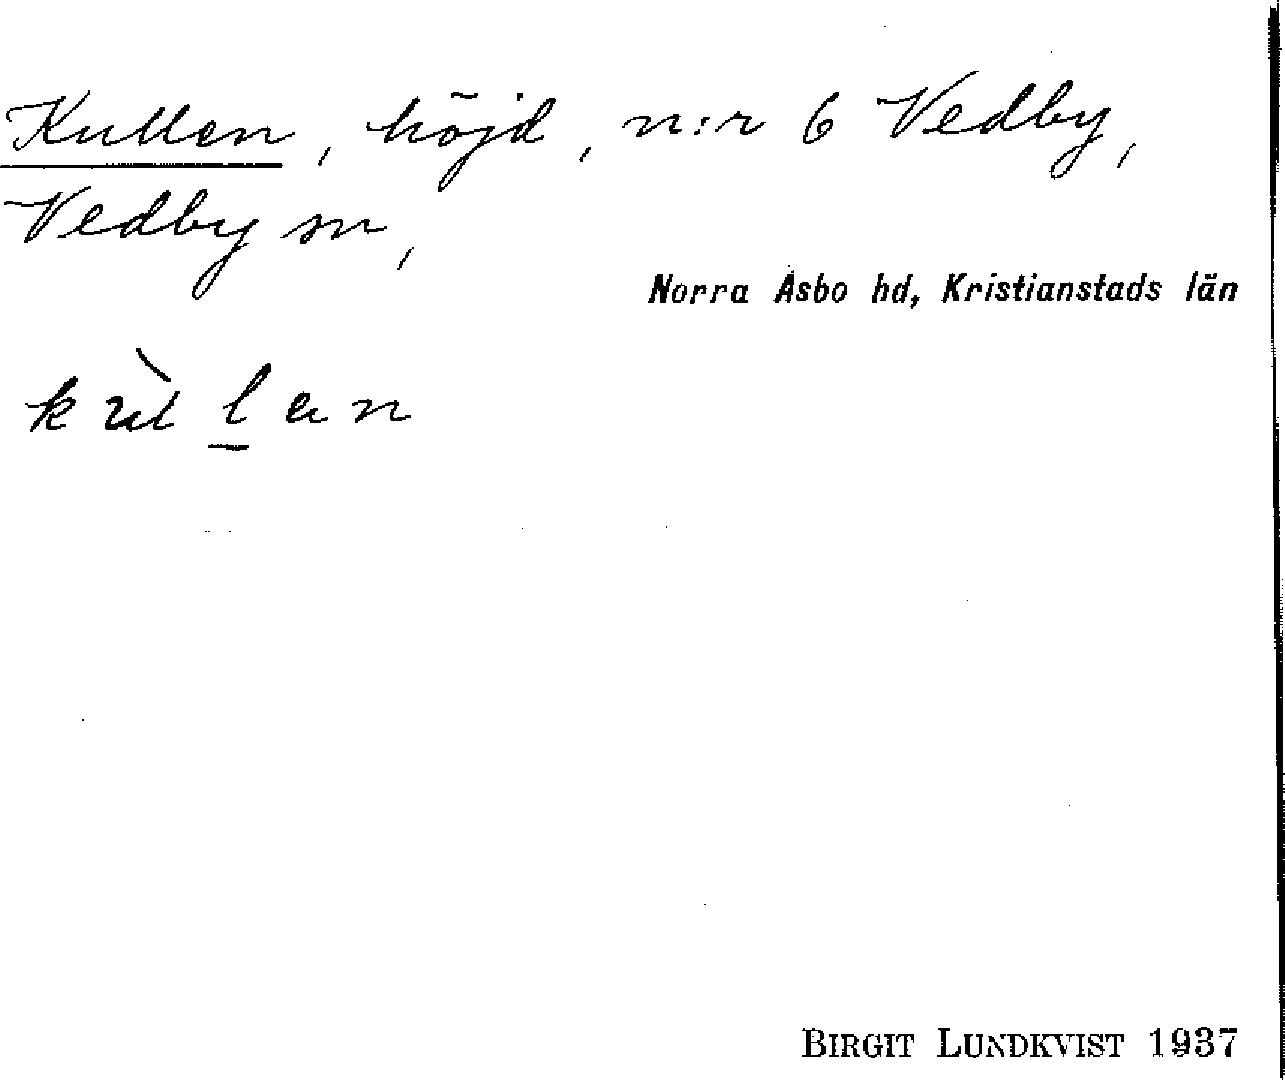 Kullen, höjd, n:r 6 Vedby,
Vedby sn,
Norra Åsbo hd, Kristianstads län
BIRGIT LUNDKVIST 1937